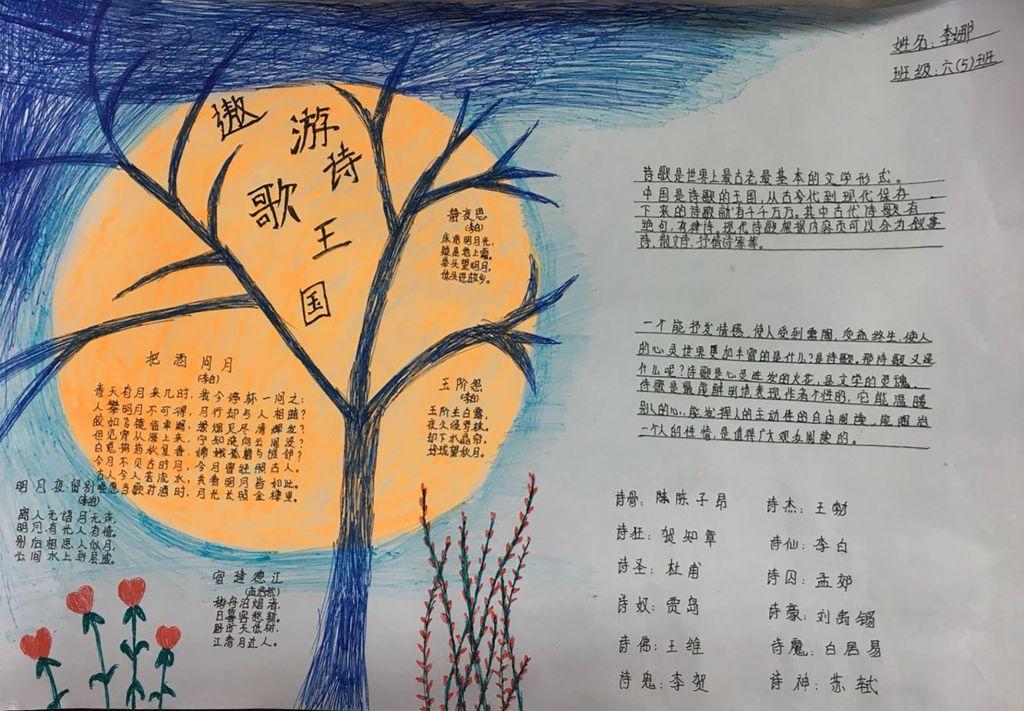 姓名：李娜
班级：六(5)班
遨游诗歌王国
静夜思
(李白)
床前明月光，
疑是地上霜。
举头望明月，
低头思故乡。
诗歌是世界上最古老最基本的文学形式。
中国是诗歌的王国，从古今代到现代保存
下来的诗歌就有千千万万。其中古代诗歌有
绝句，有律诗，现代诗歌根据内容不可以分为叙事
诗、散文诗、抒情诗等等。
一个能抒发情感，使人受到熏陶，受益终生，使人
的心灵世界更加丰富的是什么？是诗歌。那诗歌又是
什么呢？诗歌是心灵迸发的火花，是文学的灵魂。
诗歌是最能鲜明地表现作者个性的，它能温暖
别人的心，能发挥人的主动性的自由阅读，能陶冶
一个人的性情，是值得广大观众阅读的。
把酒问月
(李白)
青天有月来几时，我今停杯一问之：
人攀明月不可得，月行却与人相随？
皎如飞镜临丹阙，绿烟灭尽清辉发？
但见宵从海上来，宁知晓向云间没？
白兔捣药秋复春，嫦娥孤栖与谁邻？
今月不见古时月，今月曾经照古人。
古人今人若流水，共看明月皆如此。
唯愿当歌对酒时，月光长照金樽里。
玉阶怨
(李白)
玉阶生白露，
夜久侵罗袜。
却下水晶帘，
玲珑望秋月。
明月夜留别
(李白)
离人无语月无声，
明月有光人有情。
别后相思人似月，
云间水上到层城。
宿建德江
(孟浩然)
移舟泊烟渚，
日暮客愁新。
野旷天低树，
江清月近人。
诗骨：陈陈子昂
诗杰：王勃
诗狂：贺知章
诗仙：李白
诗圣：杜甫
诗囚：孟郊
诗奴：贾岛
诗豪：刘禹锡
诗佛：王维
诗魔：白居易
诗鬼：李贺
诗神：苏轼